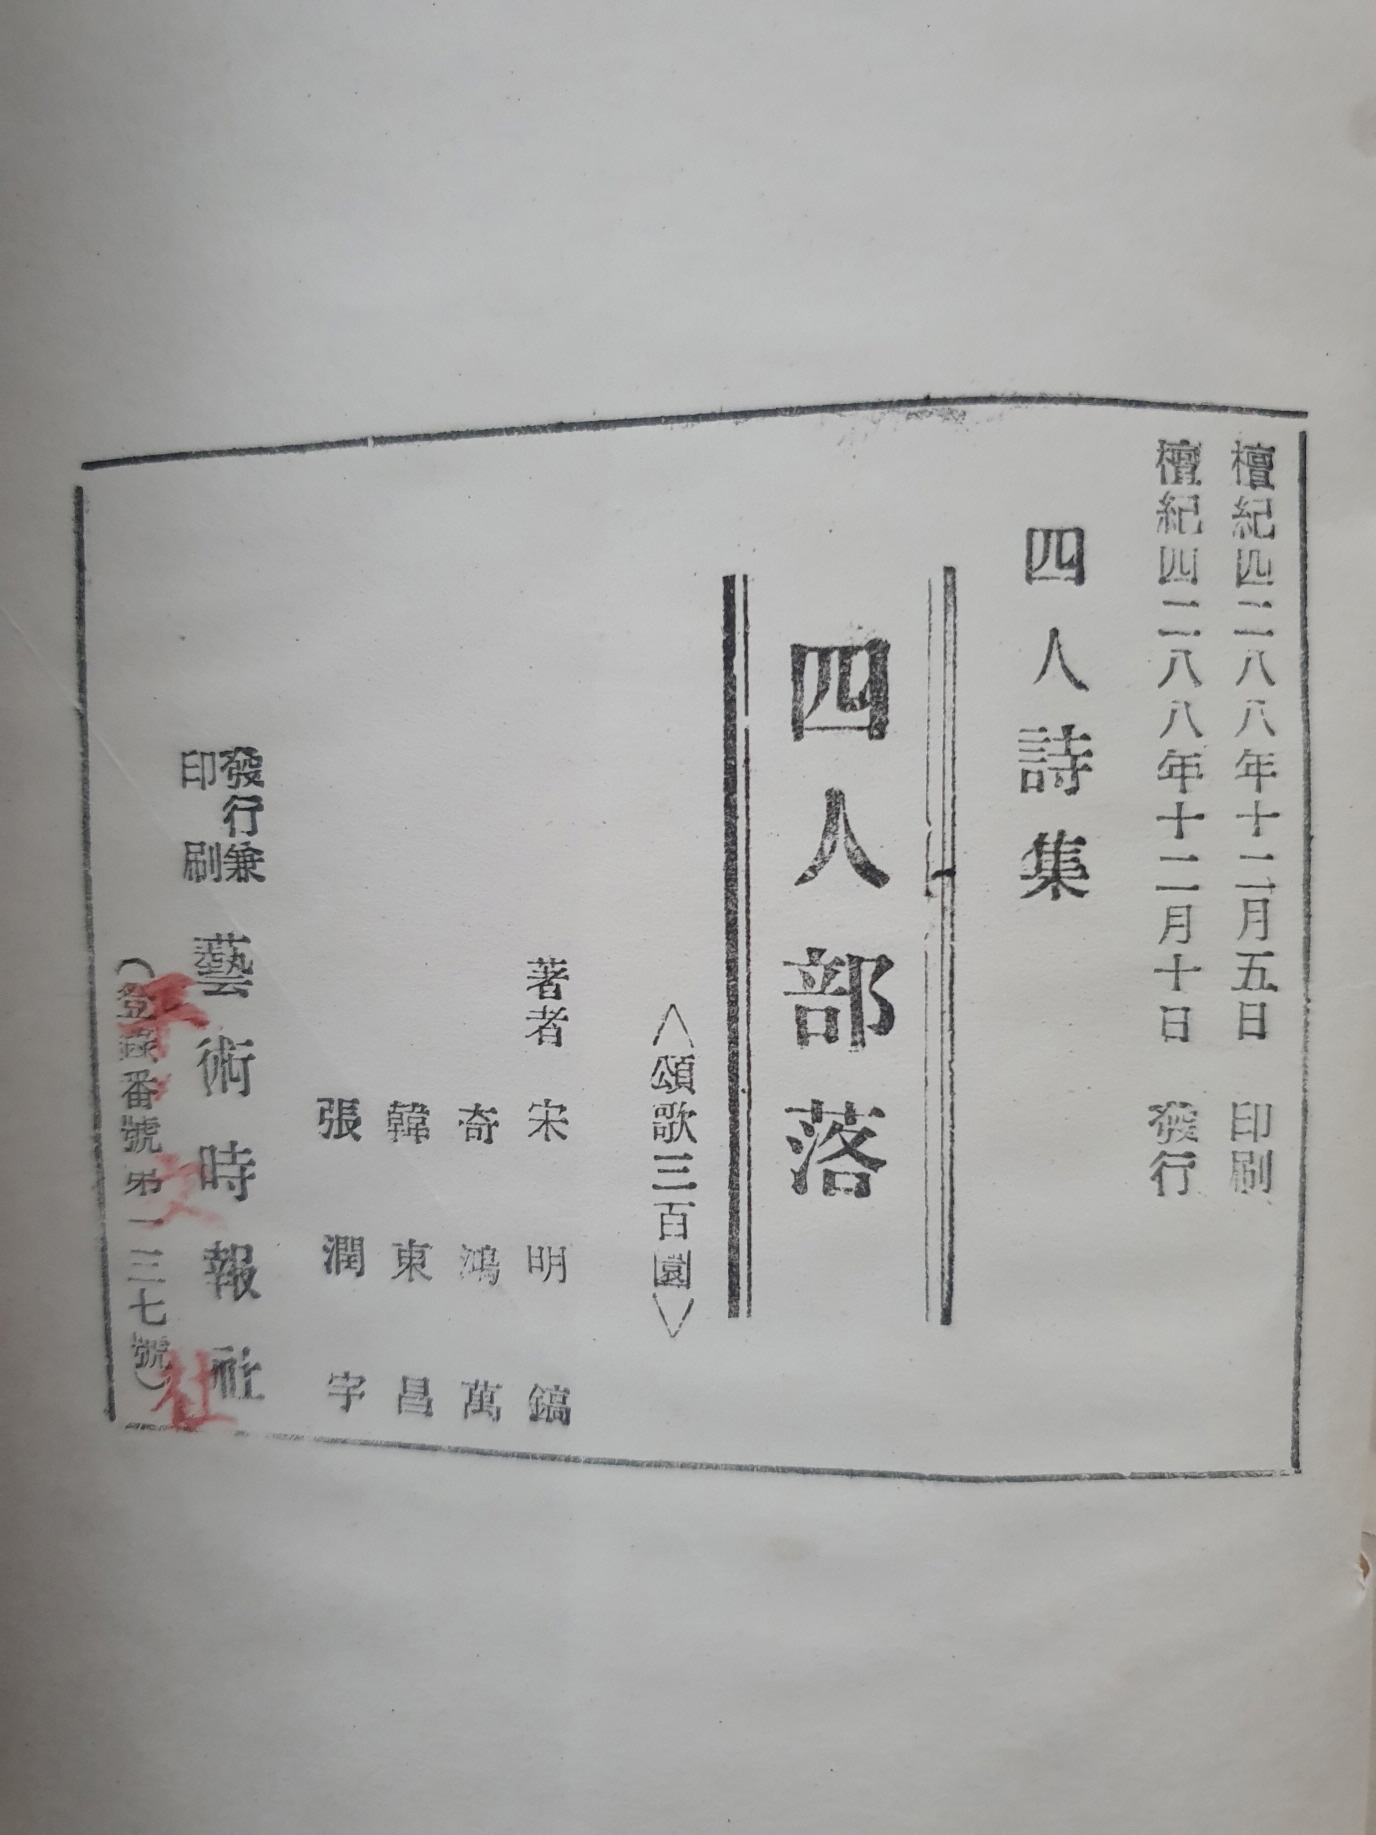 檀紀四二八八年十二月五日 印刷
檀紀四二八八年十二月十日 發行
四人詩集
四人部落
〈頌歌三百圜〉
著者 宋明鎬
奇鴻萬
韓東昌
張潤宇
發行兼
印刷
藝術時報社
(登錄番號第一三七號)
社